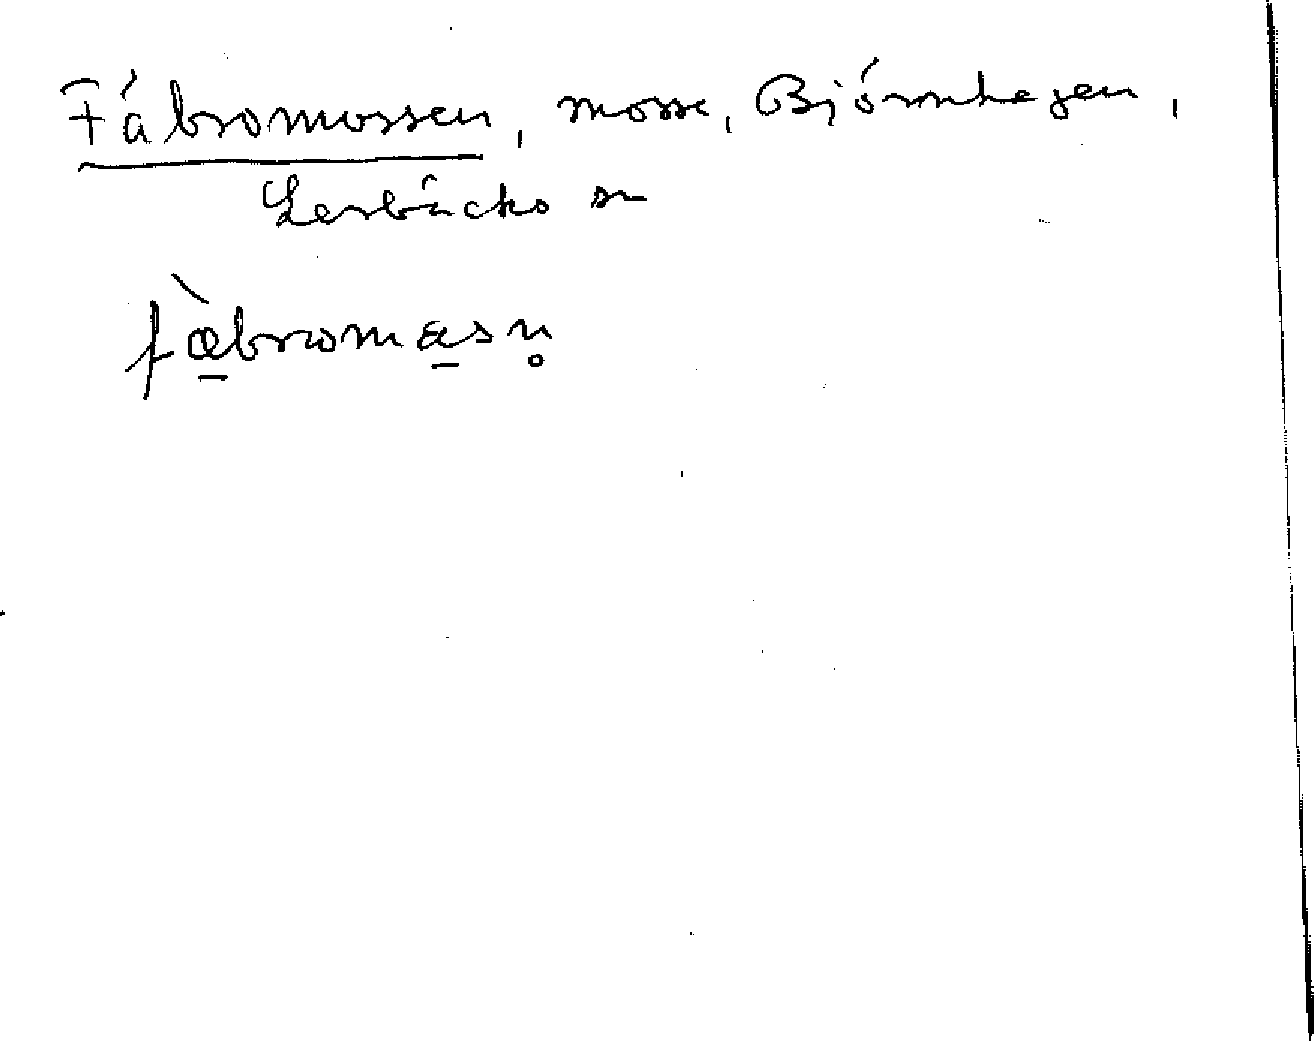 Fäbromossen, mosse, Björnhagen,
Lerbäcks sn
fæ̀bromasn̥